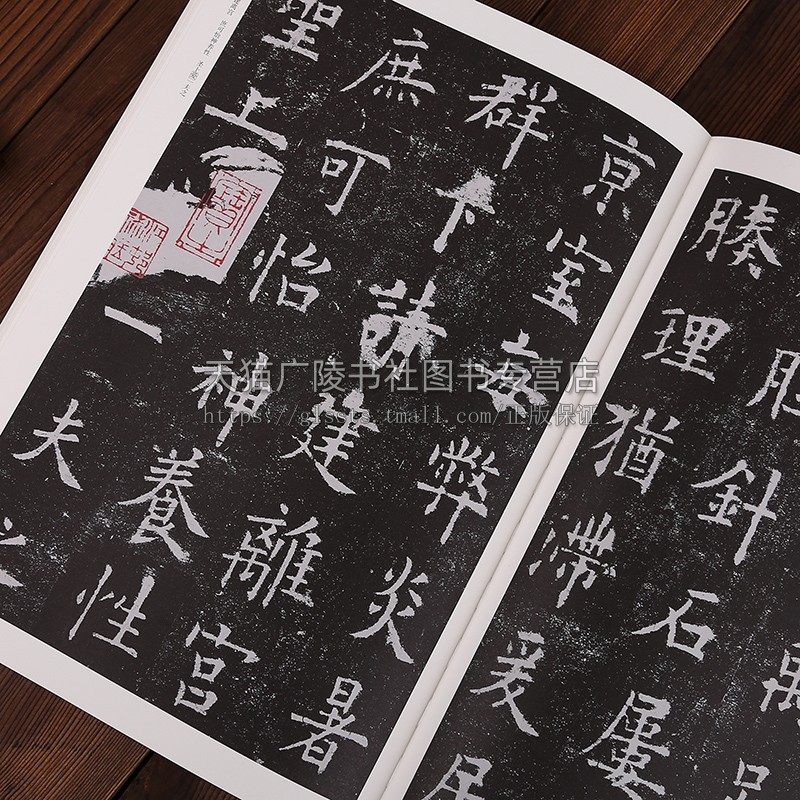 胝針石屢
腠理猶滯爰居
京室每弊炎暑
群下請建離宮
庶可怡神養性
聖上一夫之
天猫广陵书社图书专营店
https://glssts.tmall.com/正版保证